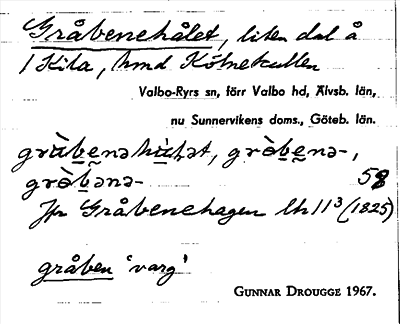 Gråbenehålet, liten dal å
1 Kila, hmd Kölnekullen
Valbo-Ryrs sn, förr Valbo hd, Älvsb. län,
nu Sunnervikens doms., Göteb. län.
grȍbenə-,
grȍbənə- 58
Jfr Gråbenehagen Lh 11³ (1825)
gråben 'varg'
GUNNAR DROUGGE 1967.